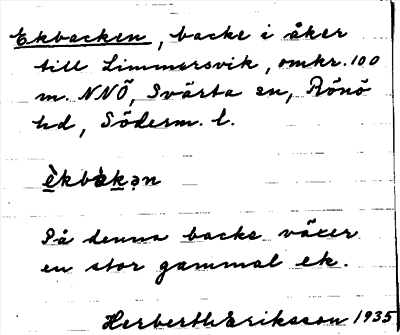 Ekbacken, backe i åker
till Limmersvik, omkr. 100
m. NNÖ, Svärta sn, Rönö
hd, Söderm. l.
èkbàkən
På denna backe växer
en stor gammal ek.
Herbert Eriksson 1935